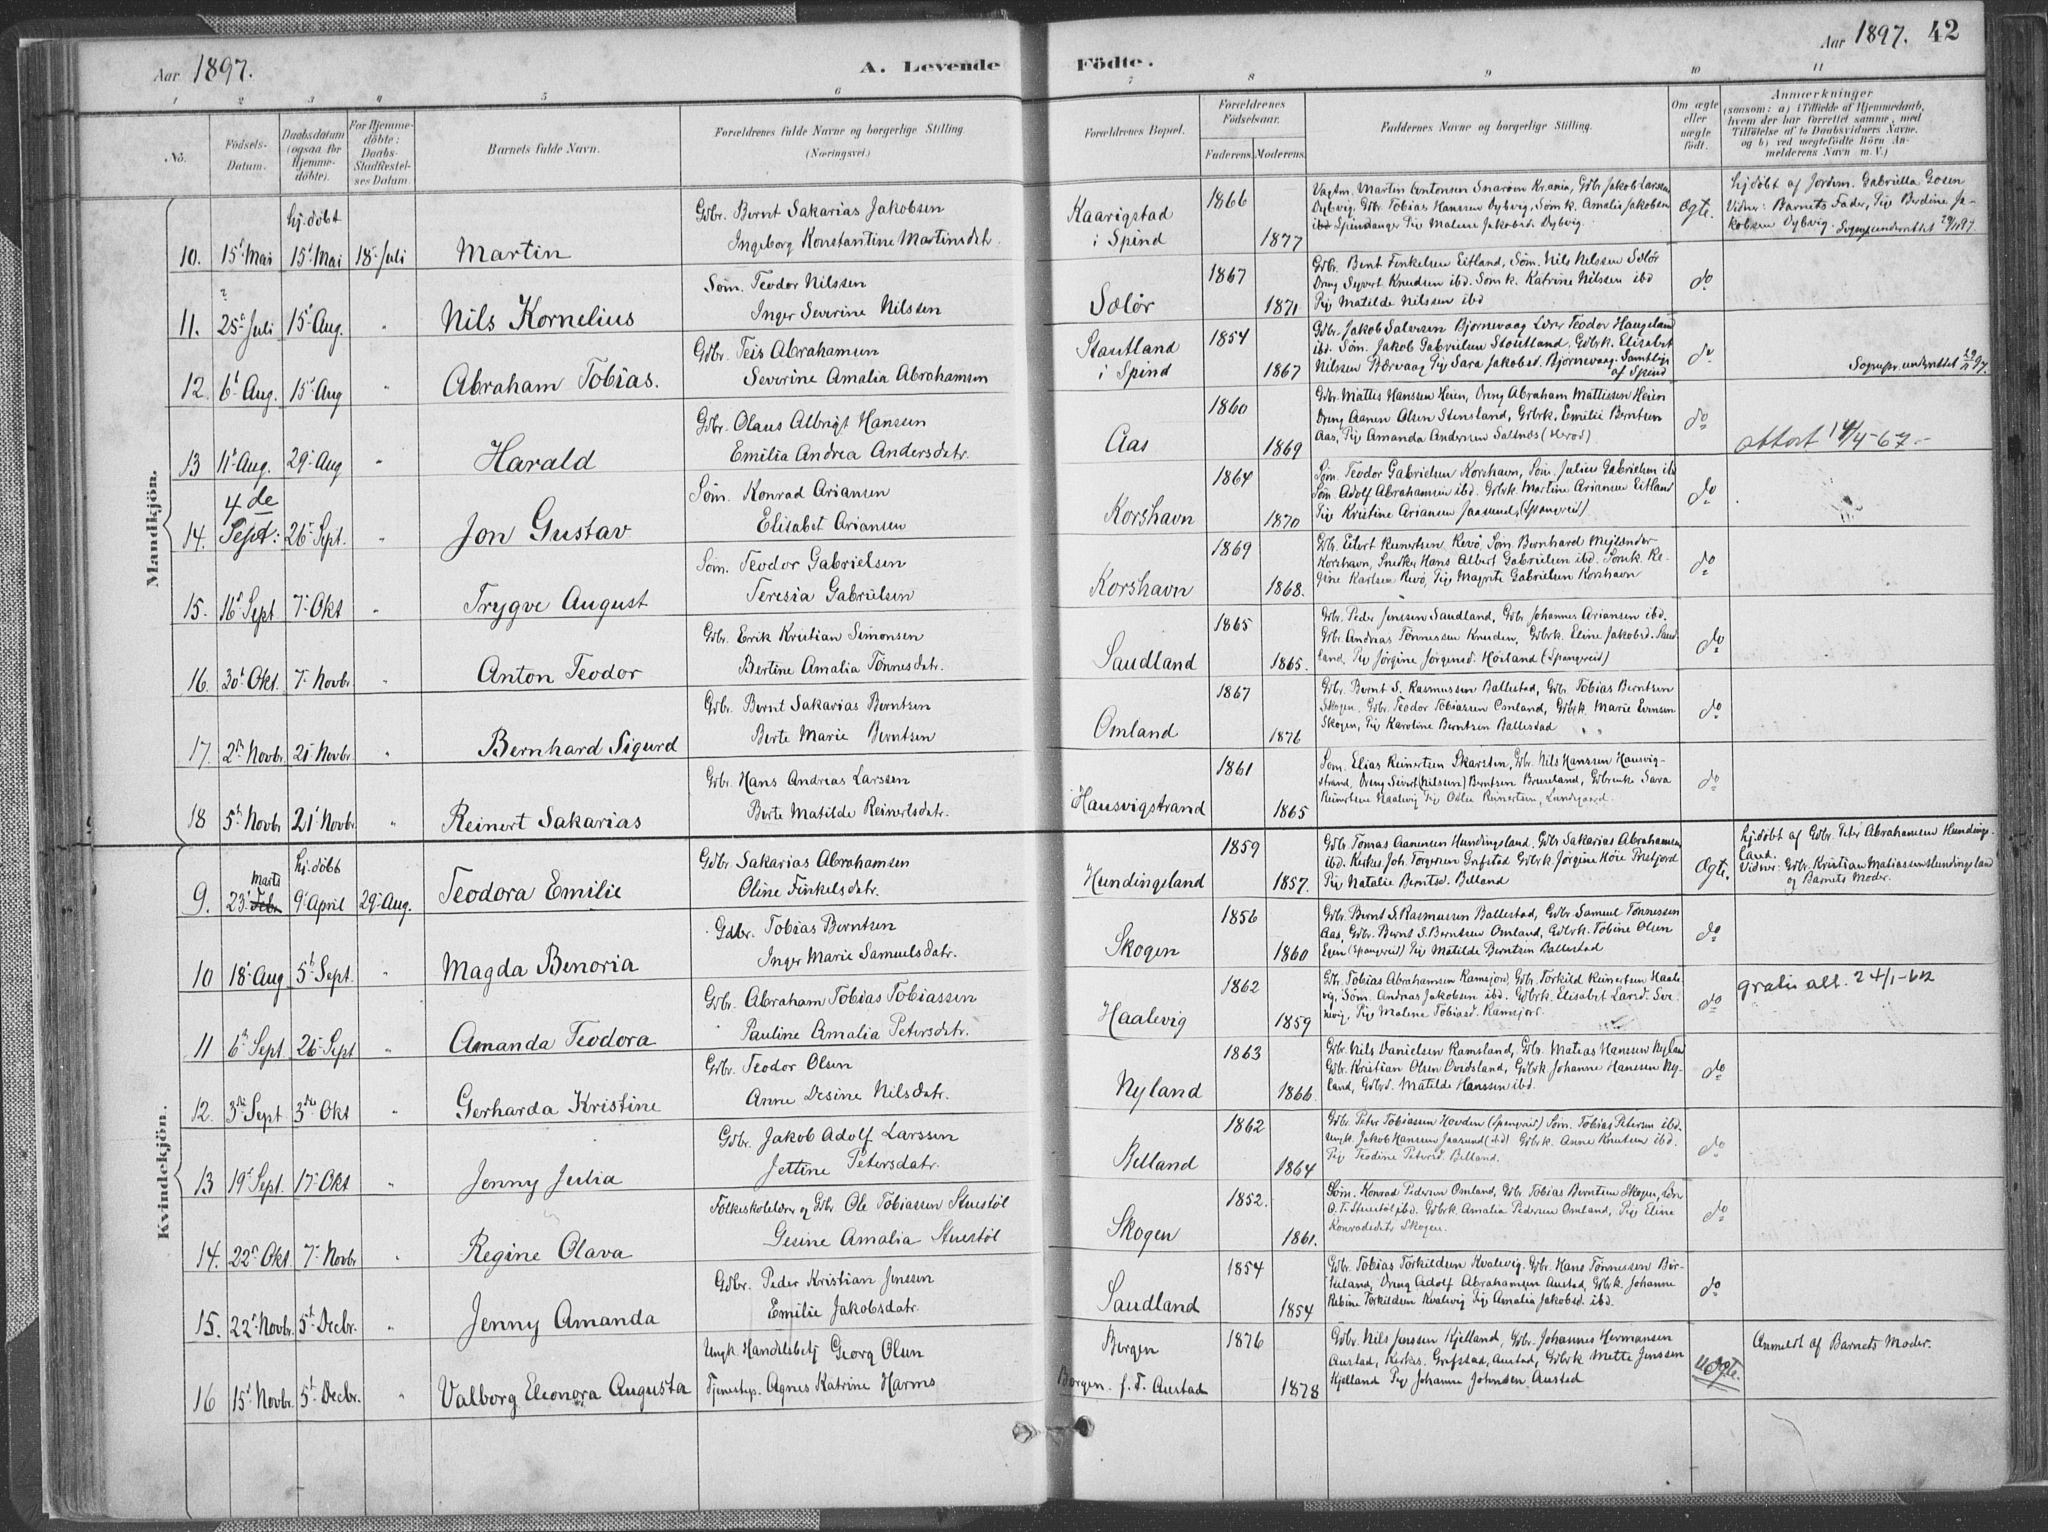 Aar 1897. A. Levende Födte. Aar 1897. 42
1 2 3 4 5 6 7 8 9 10 11
No.
Födsels-
Datum.
Daabsdatum
(ogsaa for
Hjemme-
döbte).
For Hjemme-
döbte:
Daabs-
Stadfæstel-
ses Datum.
Barnets fulde Navn.
Forældrenes fulde Navne og borgerlige Stilling
(Næringsvei.)
Forældrenes Bopæl.
Forældrenes
Födselsaar.
Faderens. Moderens.
Faddernes Navne og borgerlige Stilling.
Om ægte
eller
uægte
födt.
Anmærkninger
(saasom: a) i Tilfælde af Hjemmedaab,
hvem der har forrettet samme, med
Tilföielse af to Daabsvidners Navne,
og b) ved uægtefödte Börn An-
melderens Navn m. V.)
Mandkjön.
10. 15' Mai hj.döbt 15' Mai 18' Juli Martin
Gdbr. Bernt Sakarias Jakobsen
Ingeborg Konstantine Martinsdtr.
Kaarigstad
i Spind
1866 1877
Vagtm. Martin Antonsen Snarøen Kr.ania, Gdbr Jakob Larssen
Dybvig, Gdbr Tobias Hanssen Dybvig, Sømk. Amalia Jakobsen
ibd Spindanger Pig Malene Jakobsd. Dybvig.
Ægte.
hj.döbt af Jordm. Gabriella Gosen
Vidner: Barnets Fader, Pig Berdine Ja-
kobsen Dybvig. Sognepr underrettet 29/11 97.
11. 25' Juli 15' Aug. " Nils Kornelius
Søm. Teodor Nilssen
Inger Severine Nilssen
Sælör
1867 1871
Gdbr. Bent Finkelsen Eitland, Søm. Nils Nilssen Sælör
Dreng Syvert Knudsen ibd. Sømk. Katrine Nilssen ibd
Pig Matilde Nilssen ibd
do
12. 6' Aug. 15' Aug " Abraham Tobias.
Gdbr. Teis Abrahamsen
Severine Amalia Abrahamsen
Stoutland
i Spind
1854 1867
Gdbr. Jakob Salvesen Bjørnevaag Lærer Teodor Haugeland
ibd. Søm. Jakob Gabrielsen Stoutland. Gdbrk. Elisabet
Nilssen Bærvaag Pig Sara Jakobsd. Bjørnevaag. Samtlige
af Spind
do
Sognepr. underrettet 29/11 97.
13 11' Aug. 29' Aug " Harald
Gdbr. Olaus Albrigt Hanssen
Emilia Andrea Andersdtr.
Aas
1860 1869
Gdbr. Mattis Hanssen Heien, Dreng Abraham Mattissen Heien
Dreng Aanen Olsen Stensland, Gdbrk. Emilie Berntsen
Aas, Pig Amanda Andersen Saltnæs (Herod).
do
attest 14/4-67.-
14. 4de Sept: 26' Sept. " Jon Gustav
Søm. Konrad Ariansen
Elisabet Ariansen
Korshavn
1864 1870
Søm. Teodor Gabrielsen Korshavn, Søm. Julius Gabrielsen ibd
Søm. Adolf Abrahamsen ibd. Gdbrk. Martine Ariansen Eitland
Pig Kristine Ariansen Jaasund, (Spangereid)
do
15. 16' Sept 7' Okt " Trygve August
Søm. Teodor Gabrielsen
Teresia Gabrielsen
Korshavn
1869 1868.
Gdbr. Edert Reinertsen Revø, Søm. Bernhard Mejlænder
Korshavn, Snedker Hans Albert Gabrielsen ibd. Sømk. Re-
gine Karlsen Revø, Pig Magrete Gabrielsen Korshavn
do
16. 30' Okt. 7' Novbr. " Anton Teodor
Gdbr. Erik Kristian Simonsen
Bertine Amalia Tønnesdatr.
Saudland
1865 1865.
Gdbr. Peder Jenssen Saudland, Gdbr Johannes Ariansen ibd.
Gdbr. Andreas Tønnessen Knuden, Gdbrk. Eline Jakobsd. Saud-
land, Pig Jørgine Jørgensd. Høiland (Spangereid)
do
17. 2' Novbr. 21' Novbr. " Bernhard Sigurd
Gdbr. Bernt Sakarias Berntsen
Berte Marie Berntsen
Omland
1867 1876
Gdbr. Bernt S. Rasmussen Ballestad, Gdbr. Tobias Berntsen
Skogen, Gdbr. Teodor Tobiassen Omland, Gdbrk. Marie Evensen
Skogen, Pig Karoline Berntsen Ballestad
do
18 5' Novbr 21' Novbr. " Reinert Sakarias
Gdbr. Hans Andreas Larssen
Berte Matilde Reinertsdatr.
Hausvigstrand
1861 1865
Søm. Elias Reinertsen Skarsten, Gdbr. Nils Hanssen Hausvig-
strand, Dreng Sivert (Nilssen) Berntsen Bruseland, Gdbrenke Sara
Reinertsen Haalevig Pig Oslie Reinertsen, Lundegaard.
do
Kvindekjön.
9. 23' Marts Febr. hj.döbt 9' April 29' Aug. Teodora Emilie
Gdbr. Sakarias Abrahamsen
Oline Finkelsdatr.
Hundingsland
1859 1857.
Gdbr. Tomas Aanensen Hundingsland, Gdbr Sakarias Abrahamsen
ibd. Kirkes. Joh. Torgersen Grefstad Gdbrk. Jørgine Høie Prestjord
Pig Natalie Berntsd. Belland
Ægte.
hj.döbt af Gdbr. Peter Abrahamsen Hundings-
land.
Vidner: Gdbr. Kristian Matiassen Hundingsland
og Barnets Moder.
10 18' Aug 5' Sept. " Magda Benoria
Gdbr. Tobias Berntsen
Inger Marie Samuelsdatr.
Skogen
1856 1860
Gdbr. Bernt S. Rasmussen Ballestad, Gdbr Samuel Tønnessen
Aas, Gdbr. Bernt S. Berntsen Omland, Gdbrk. Tobine Olsen
Egen (Spangereid) Pig Matilde Berntsen Ballestad
do
11 6' Sept. 26' Sept " Amanda Teodora
Gdbr. Abraham Tobias Tobiassen
Pauline Amalia Petersdatr.
Haalevig
1862 1859
Gdbr. Tobias Abrahamsen Ramsjord, Gdbr. Torkild Reinertsen Haale-
vig, Søm. Andreas Jakobsen ibd. Gdbrk. Elisabet Larsd. Sve-
nevig, Pig Malene Tobiasd. Ramsjord.
do
gratis att. 24/1-62
12. 3' Sept 3' Okt " Gerharda Kristine
Gdbr. Teodor Olsen
Anne Desine Nilsdatr.
Nyland
1863 1866.
Gdbr. Nils Danielsen Ramsland, Gdbr. Matias Hanssen Nyland
Gdbr. Kristian Olsen Ovidsland, Gdbrk Johanne Hanssen Ny-
land, Gdbrd. Matilde Hanssen ibd.
do
13 19' Sept. 17' Okt " Jenny Julia
Gdbr. Jakob Adolf Larssen
Jettine Petersdatr.
Belland
1862 1864
Gdbr. Peter Tobiassen Hovden (Spangereid) Søm. Tobias Petersen ibd.
Ungk. Jakob Hansen Jaasund (ibd) Gdbrk. Anne Knutsen ibd.
Pig Teodine Petersd. Belland.
do
14. 22' Okt. 7' Novbr " Regine Olava
Folkeskolelærer og Gdbr Ole Tobiassen Stuestöl
Gesine Amalia Stuestöl
Skogen
1852. 1861.
Søm. Konrad Pedersen Omland, Gdbr. Tobias Berntsen Skogen, Lærer
O. T. Stuestöl ibd. Gdbrk Amalia Pedersen Omland, Pig Eline
Konradsdatr Skogen.
do
15. 22' Novbr. 5' Decbr. " Jenny Amanda
Gdbr. Peder Kristian Jenssen
Emilie Jakobsdatr.
Saudland
1854 1854
Gdbr. Tobias Torkildsen Kvalevig, Gdbr. Hans Tønnessen Bir-
keland, Dreng Adolf Abrahamsen Austad, Gdbrk. Johanne
Rebine Torkildsen Kvalevig Pig Amalia Jakobsd. ibd.
do
16 15' Novbr. 5' Decbr. " Valborg Eleonora Augusta
Ungk. Handelsbetj Georg Olsen
Tjenestep. Agnes Katrine Harms
Bergen
Bergen. f. T. Austad
1876 1878
Gdbr. Nils Jenssen Kjelland, Gdbr. Johannes Hermansen
Austad, Kirkes. Grefstad, Austad, Gdbrk Mette Jenssen
Kjelland Pig Johanne Johnsen Austad
uægte.
Anmeldt af Barnets Moder.